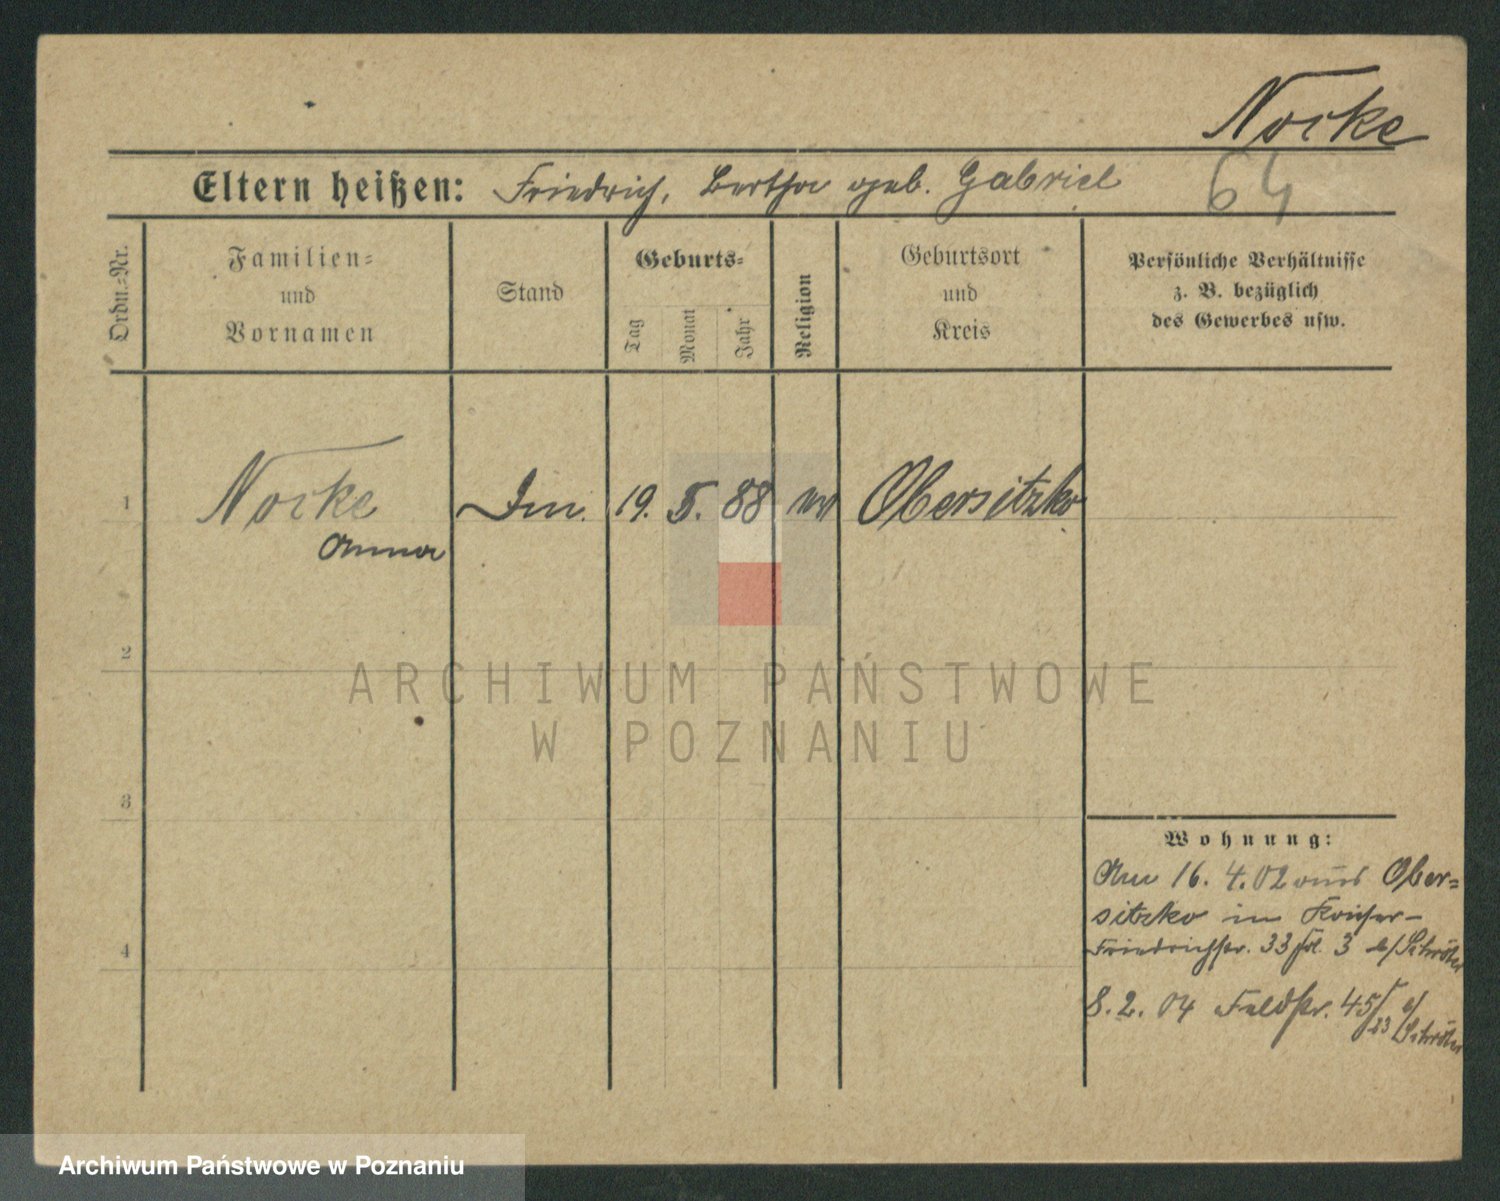 Nocke
Eltern heißen: Friedrich, Bertha geb. Gabriel
64
Ordn.=Nr.
Familien=
und
Vornamen
Stand
Geburts=
Tag
Monat
Jahr
Religion
Geburtsort
und
Kreis
Persönliche Verhältnisse
z. B. bezüglich
des Gewerbes usw.
1
Nocke
Anna
19. 5. 88
Obersitzko
2
ARCHIWUM PAŃSTWOWE
W POZNANIU
3
4
Wohnung:
Am 16. 4. 02 aus Ober=
sitzko in Kaiser-
Friedrichstr. 33 3 b/ Schröter
8. 2. 04 Feldstr. 45 b/
23 Schröter
Archiwum Państwowe w Poznaniu